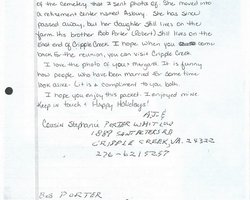 of the cemetery that I sent photo of. She moved into
a retirement center named Asbury. She has since
passed away, but her daughter still lives on the
farm. His brother Bob Porter (Robert) still lives on the
East end of Cripple Creek. I hope when you come
back for the reunion, you can visit Cripple Creek.
I love the photo of you + Margaret. It is funny
how people who have been married for some time
look alike. It is a compliment to you both.
I hope you enjoy this packet. I enjoyed it. We
keep in touch! Happy Holidays!
Cousin Stephanie PORTER WHITLOW
1889 ST PETERS RD
CRIPPLE CREEK, VA. 24322
276-621-5257
BOB PORTER